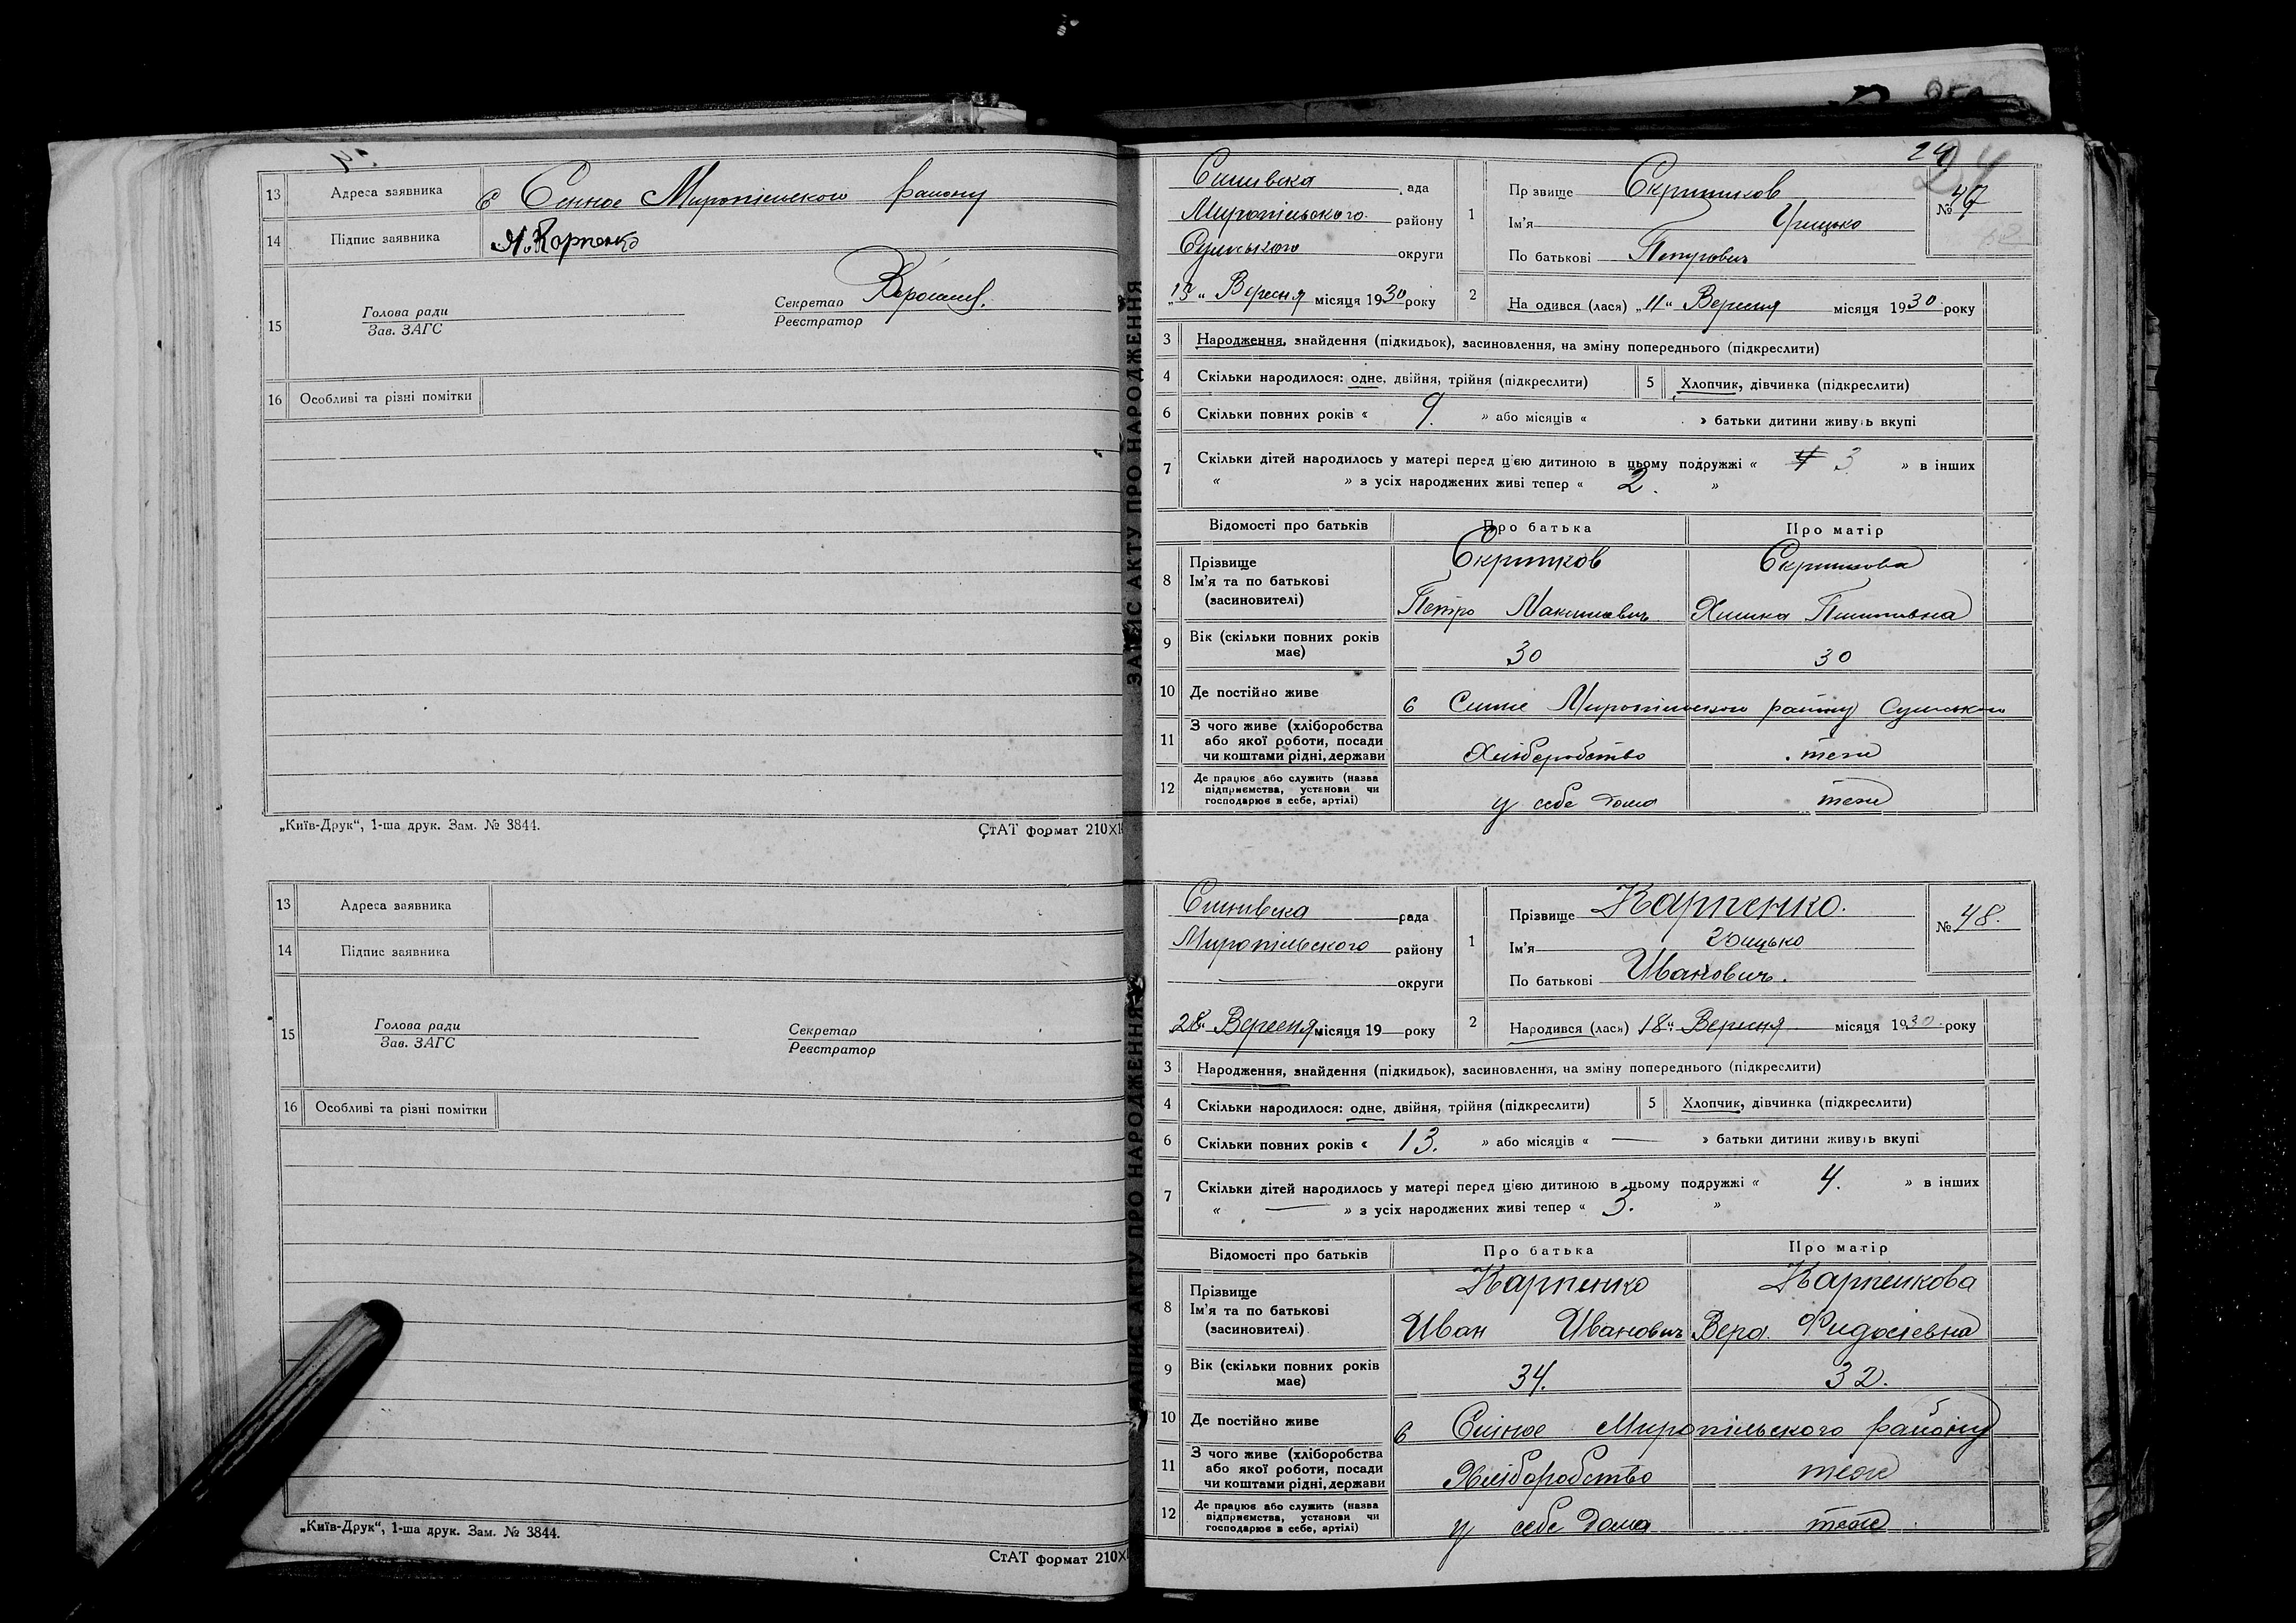 13 Адреса заявника с Сенное Миропільского району
14 Підпис заявника Карпенко
15 Голова ради
Зав. ЗАГС
Секретар
Реєстратор
16 Особливі та різні помітки
„Київ-Друк“, 1-ша друк. Зам. № 3844.
СтАТ формат 210×1
13 Адреса заявника
14 Підпис заявника
15 Голова ради
Зав. ЗАГС
Секретар
Реєстратор
16 Особливі та різні помітки
„Київ-Друк“, 1-ша друк. Зам. № 3844.
СтАТ формат 210×
ЗАПИС АКТУ ПРО НАРОДЖЕННЯ
24
24
ада
Миропільского району
Сумського округи
„13“ Вересня місяця 1930 року
1 Пр звище
Ім'я Грицько
По батькові Петрович
№ 47
2 На одився (лася) „11“ Вересня місяця 1930 року
3 Народження, знайдення (підкидьок), засиновлення, на зміну попереднього (підкреслити)
4 Скільки народилося: одне, двійня, трійня (підкреслити)
5 Хлопчик, дівчинка (підкреслити)
6 Скільки повних років « 9. » або місяців « » батьки дитини живуть вкупі
7 Скільки дітей народилось у матері перед цією дитиною в цьому подружжі « 4 3 » в інших
« » з усіх народжених живі тепер « 2. »
Відомості про батьків Про батька Про матір
8 Прізвище
Ім'я та по батькові
(засновителі)
Петро Максимович
9 Вік (скільки повних років має) 30 30
10 Де постійно живе с Миропільского району Сумського
11 З чого живе (хліборобства або якої роботи, посади чи коштами рідні, держави Хліборобство теж
12 Де працює або служить (назва підприємства, установи чи господарює в себе, артілі) у себе дома теж
ЗАПИС АКТУ ПРО НАРОДЖЕННЯ
рада
Миропільского району
округи
28“ Вересня місяця 19 року
1 Прізвище Карпенко.
Ім'я
По батькові Иванович.
№ 48.
2 Народився (лася) 18“ Вересня місяця 1930 року
3 Народження, знайдення (підкидьок), засиновлення, на зміну попереднього (підкреслити)
4 Скільки народилося: одне, двійня, трійня (підкреслити)
5 Хлопчик, дівчинка (підкреслити)
6 Скільки повних років « 13. » або місяців « — » батьки дитини живуть вкупі
7 Скільки дітей народилось у матері перед цією дитиною в цьому подружжі « 4. » в інших
« — » з усіх народжених живі тепер « 3. »
Відомості про батьків Про батька Про матір
8 Прізвище Карпенко Карпенкова
Ім'я та по батькові
(засиновителі) Иван Иванович Вера Фидосіевна
9 Вік (скільки повних років має) 34. 32.
10 Де постійно живе с Сінное Миропільского району
11 З чого живе (хліборобства або якої роботи, посади чи коштами рідні, держави Хліборобство теж
12 Де працює або служить (назва підприємства, установи чи господарює в себе, артілі) у себе дома теж